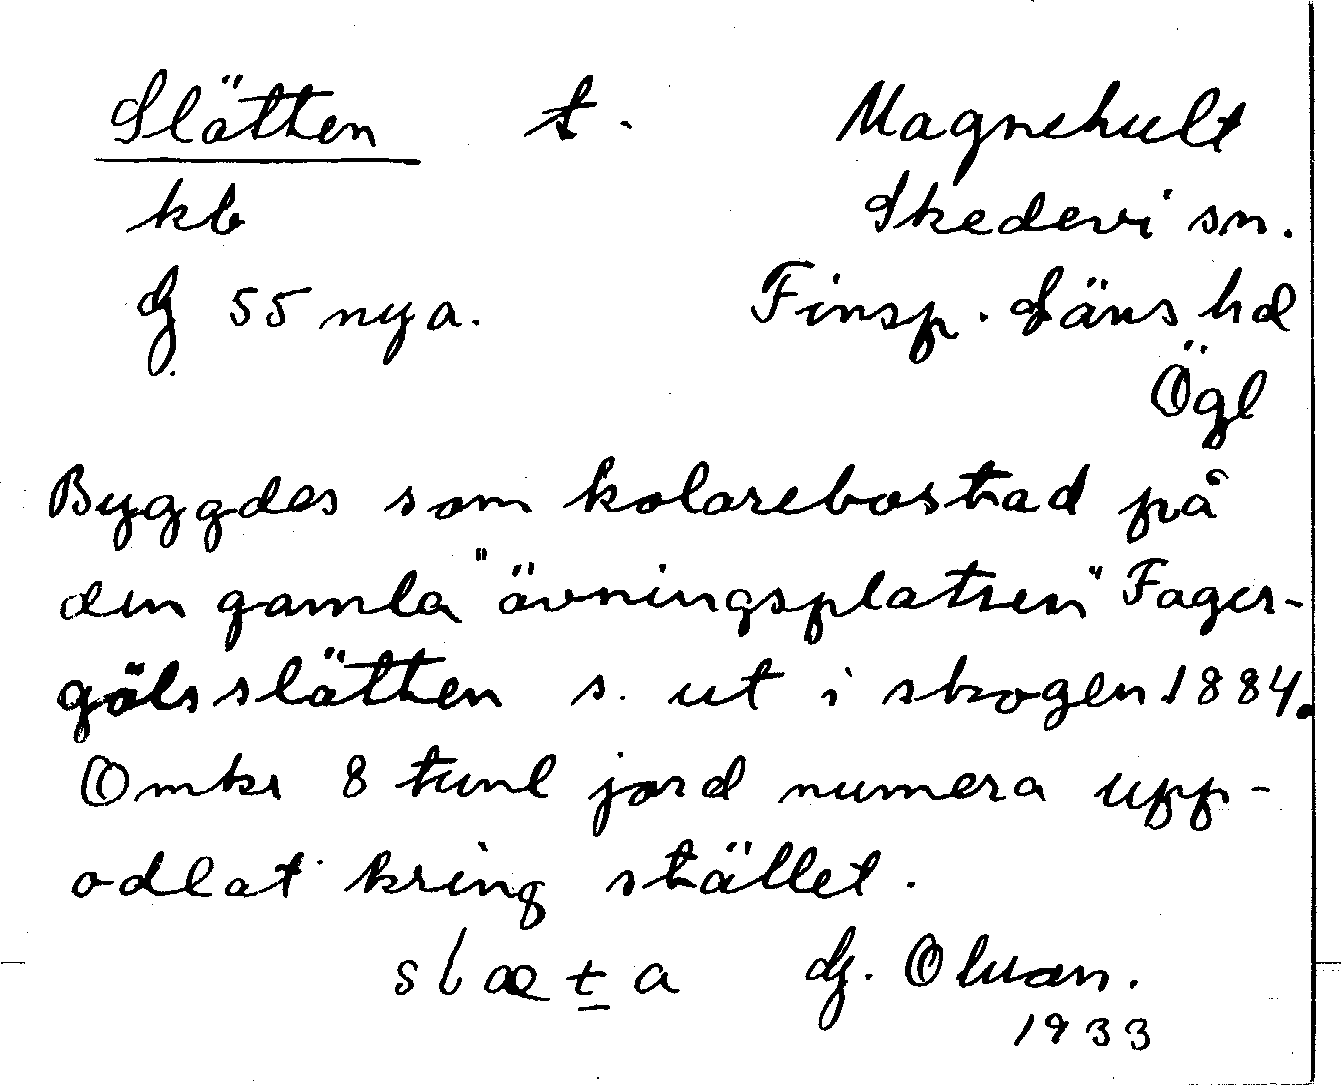 Slätten t. Magnehult
kb Skedevi sn.
G 55 nya. Finsp. Läns hd
Ögl
Byggdes som kolarebostad på
den gamla "övningsplatsen" Fagers-
göls slätten s. ut i skogen 1884.
Omkr 8 tunl jord numera upp-
odlat kring stället.
slæṯa G. Olsson.
1933